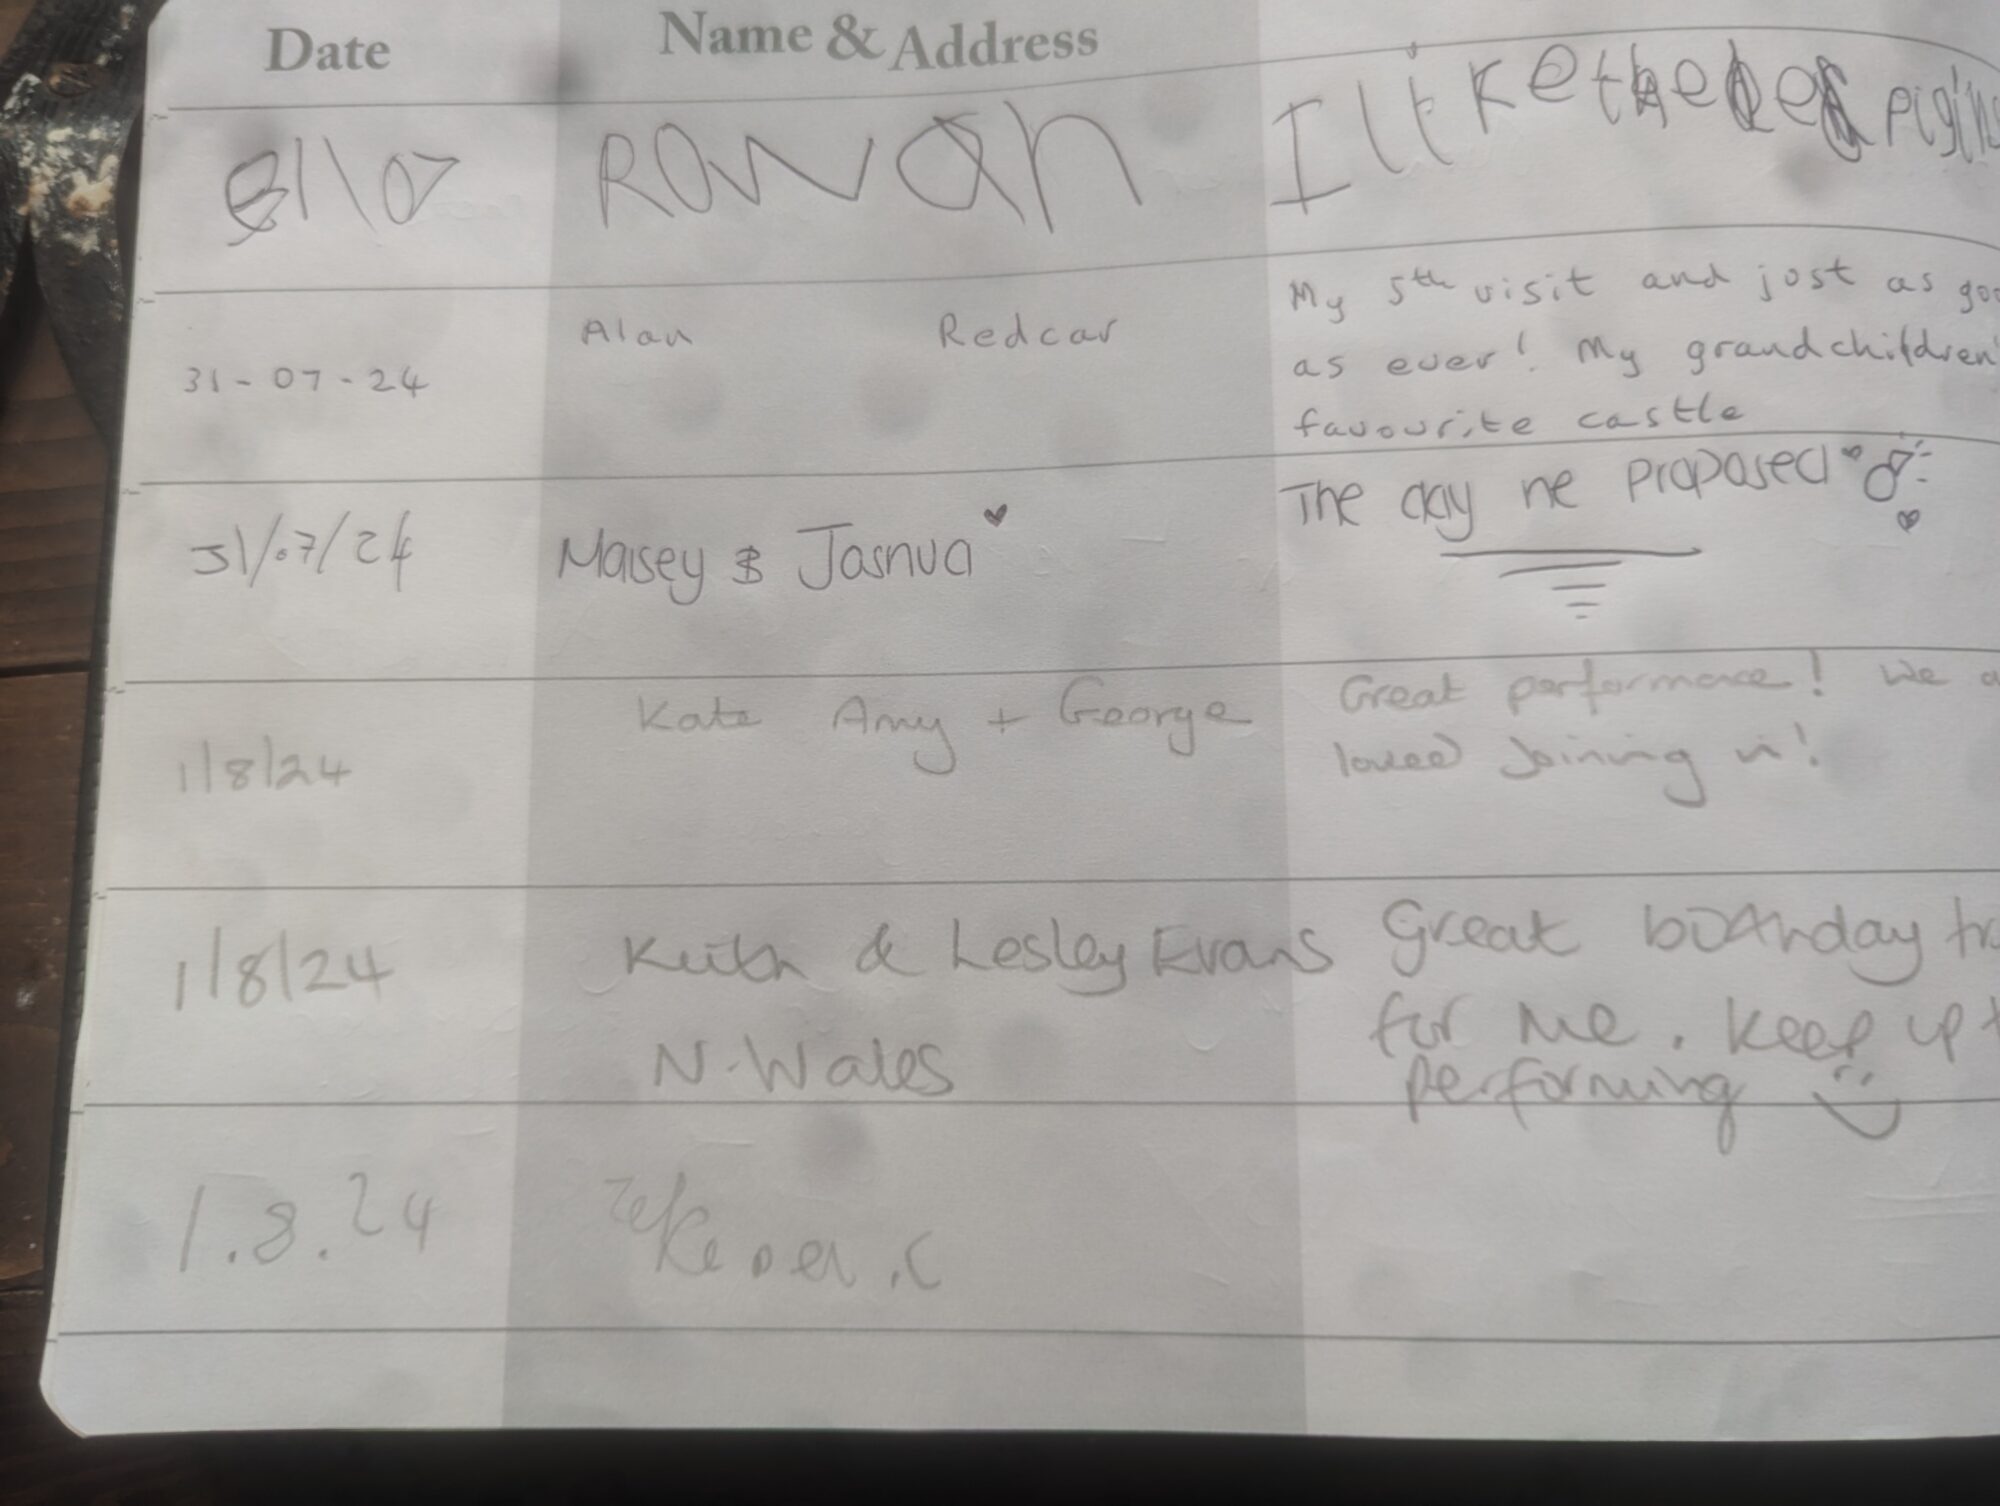 Date Name & Address
Rowan I like the pigins
31-07-24 Alan Redcar My 5th visit and just as goo
as ever! My grandchildren'
favourite castle
31/07/24 Maisey & Joshua The day he proposed
1/8/24 Kate Amy + George Great performance! We a
loved joining in!
1/8/24 Keith & Lesley Evans Great birthday tr
N. Wales for me. Keep up t
performing
1.8.24